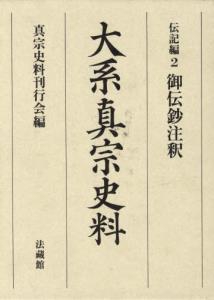 伝記編2 御伝鈔注釈
大系真宗史料
真宗史料刊行会編
法藏館